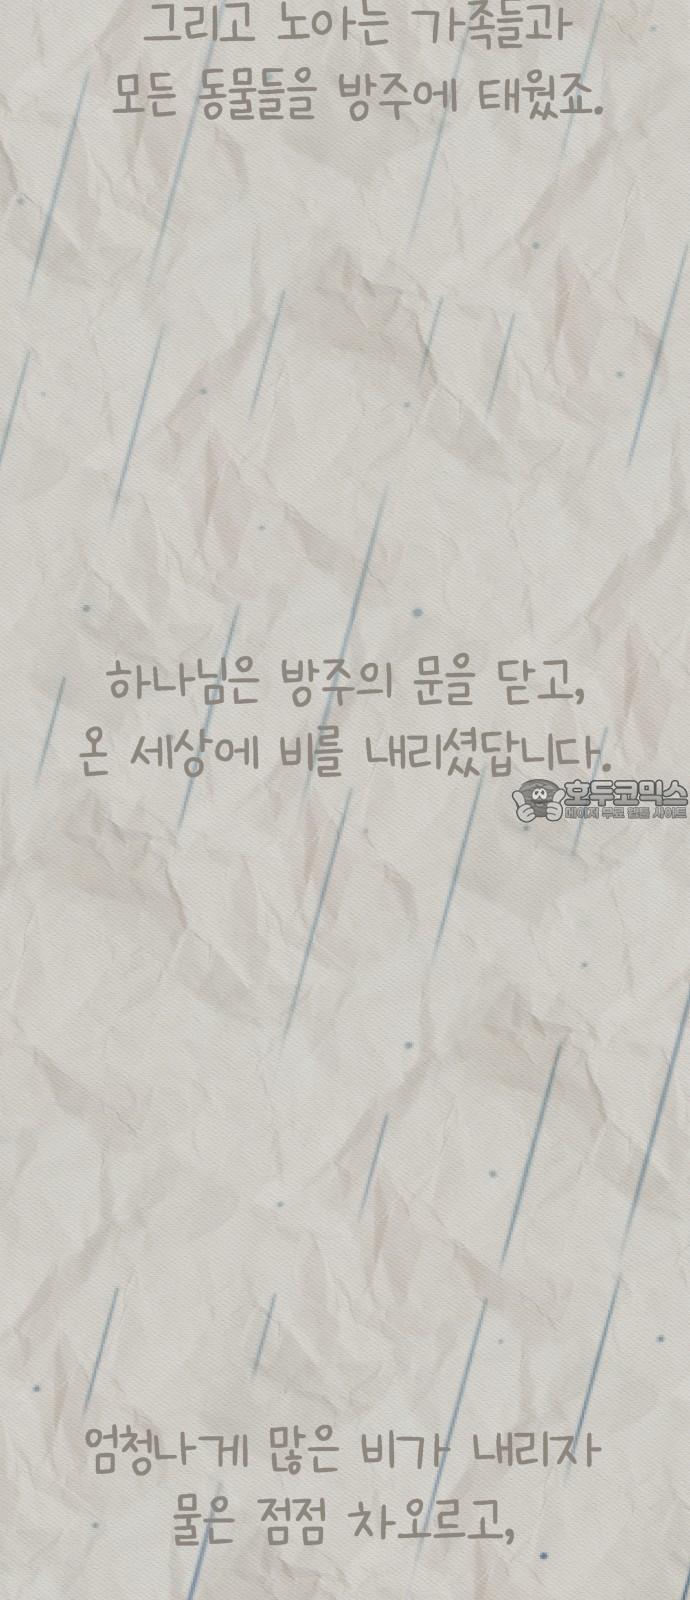 그리고 노아는 가족들과
모든 동물들을 방주에 태웠죠.
하나님은 방주의 문을 닫고,
온 세상에 비를 내리셨답니다.
호두코믹스
메이저 무료 웹툰 사이트
엄청나게 많은 비가 내리자
물은 점점 차오르고,